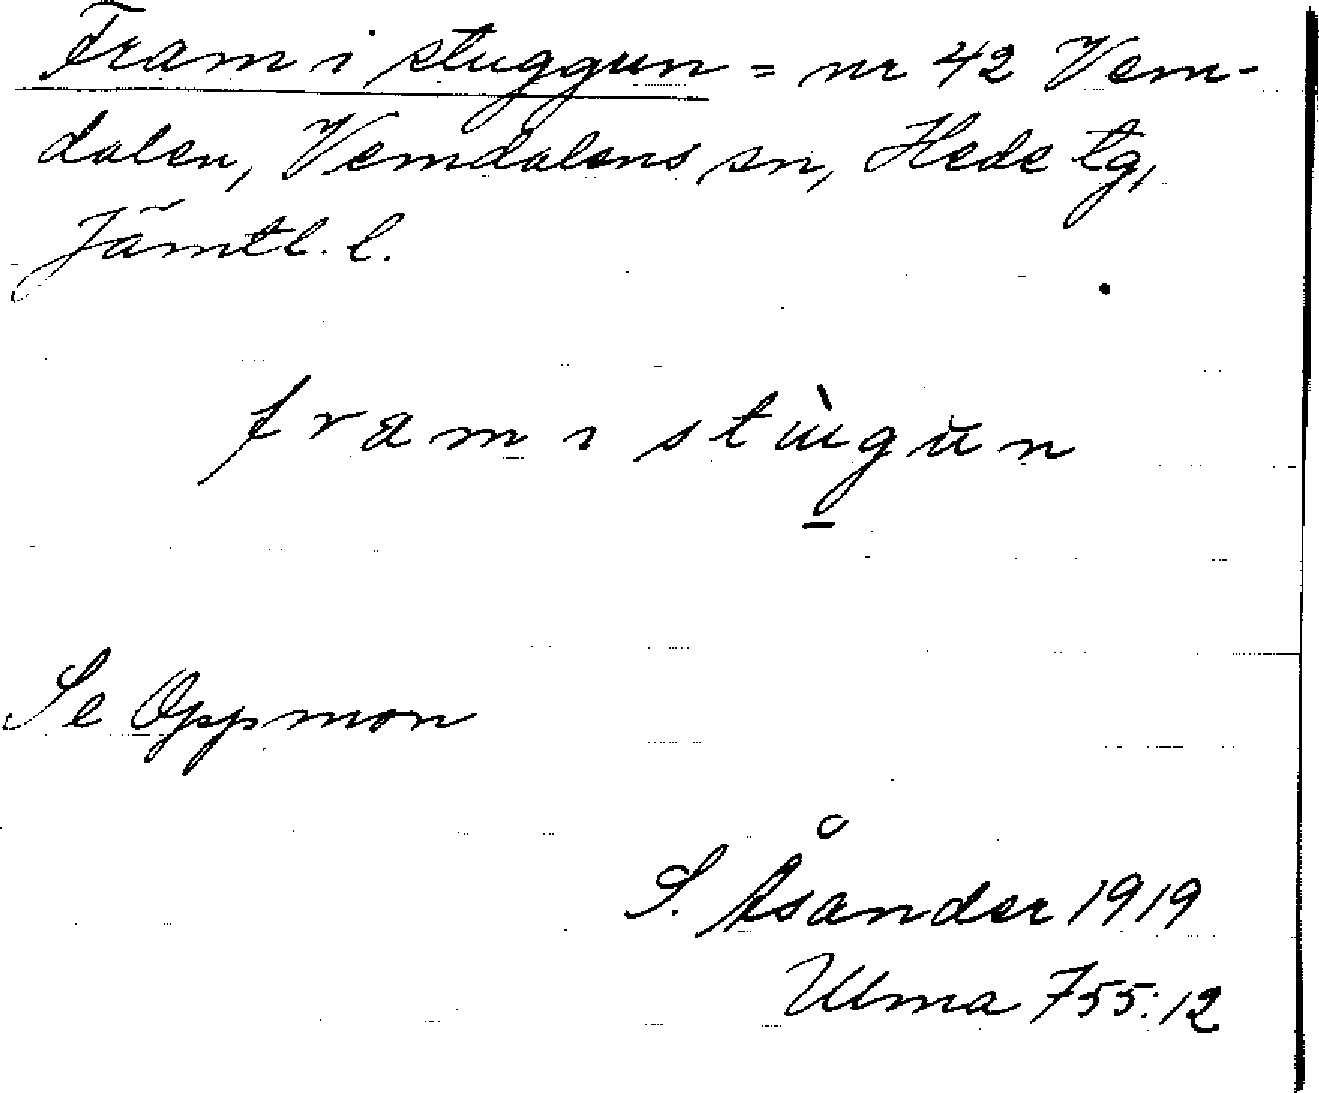 Fram i stuggun = nr 42 Vem-
dalen, Vemdalens sn, Hede tg,
Jämtl. l.
fram i stùgun
Se Oppmon
S. Åsander 1919
Ulma 755:12